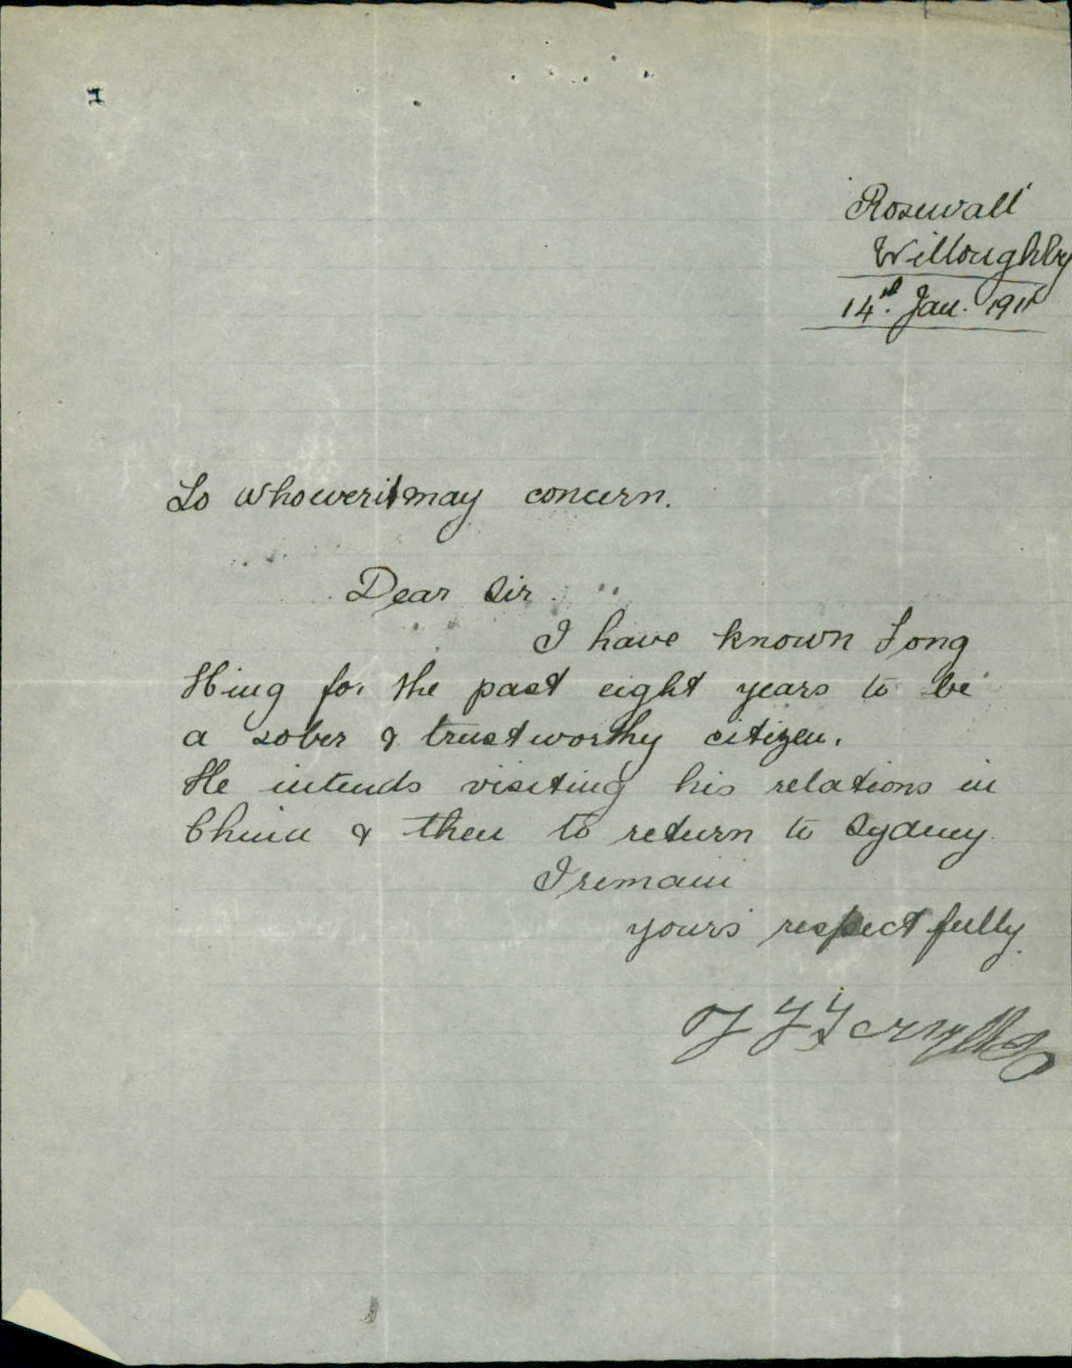 'Rosewall'
Willoughby
14th. Jan. 1911
To whoweritmay concern.
Dear Sir.
I have known Long
Hing for the past eight years to be
a sober & trustworthy citizen.
He intends visiting his relations in
China & then to return to Sydney.
I remain
yours respectfully.